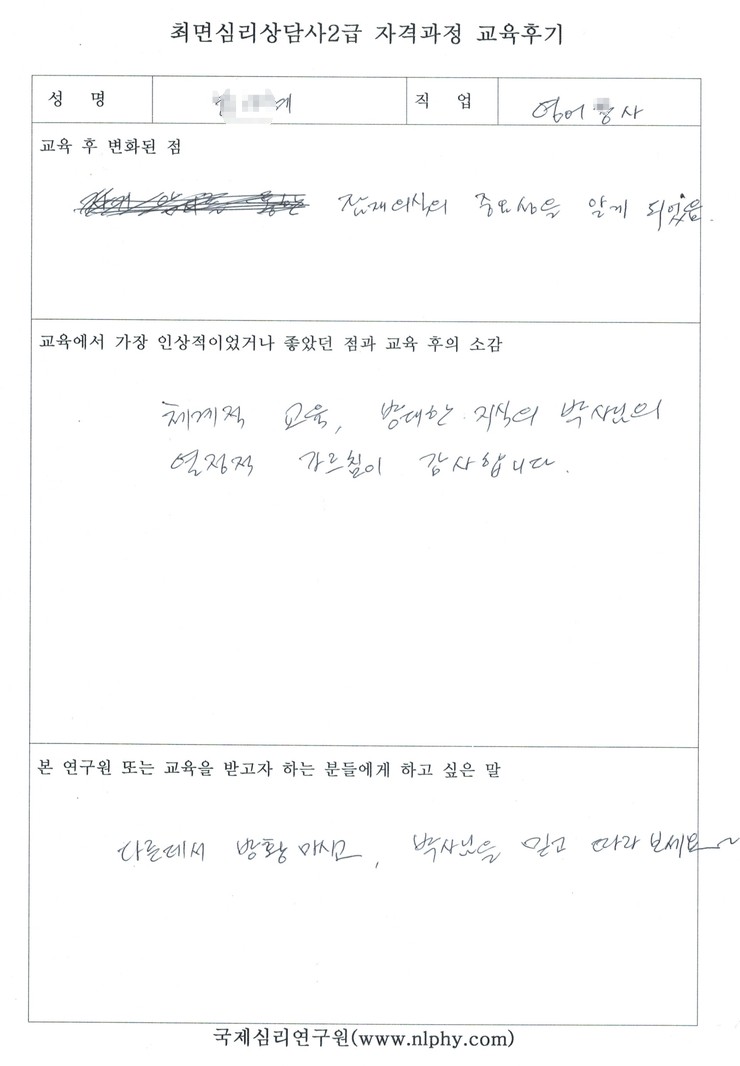 최면심리상담사2급 자격과정 교육후기
성 명 계 직 업 영어 사
교육 후 변화된 점
잠재의식의 중요성을 알게 되었음.
교육에서 가장 인상적이었거나 좋았던 점과 교육 후의 소감
체계적 교육, 방대한 지식의 박사님의
열정적 가르침이 감사합니다.
본 연구원 또는 교육을 받고자 하는 분들에게 하고 싶은 말
다른데서 방황 마시고, 박사님을 믿고 따라 보세요~
국제심리연구원(www.nlphy.com)